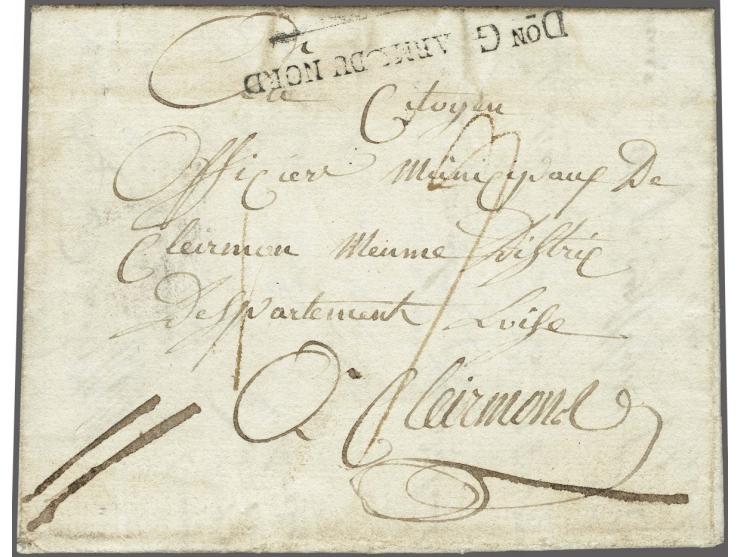 DON G ARM. DU NORD
Au
Citoyen
Officiers Municipaux De
Cleirmon Meume Distric
Despartement Loise
A Cleirmond